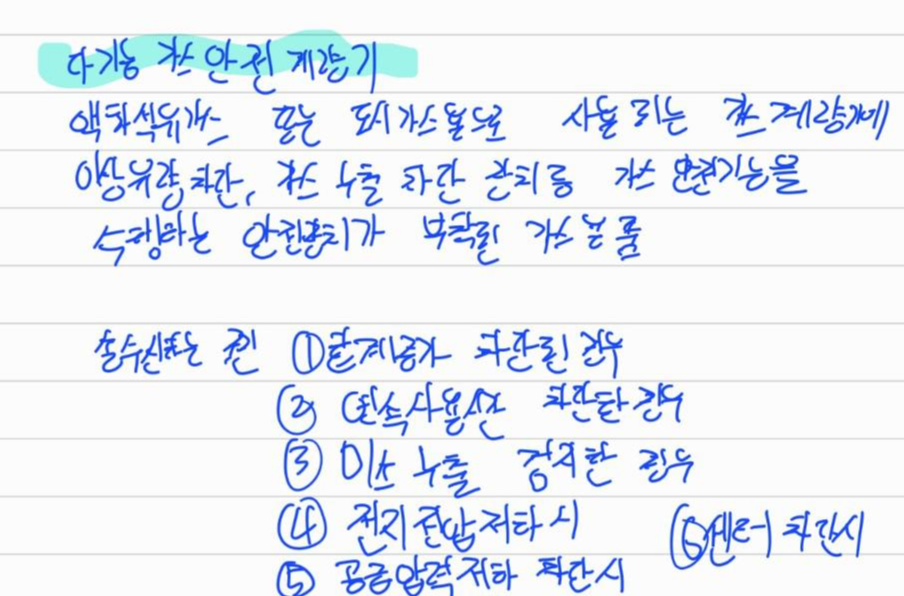 다기능 가스 안전 계량기
액화석유가스 또는 도시가스용으로 사용 되는 가스계량기에
이상유량차단, 가스 누출 차단 장치 등 가스 안전기능을
수행하는 안전장치가 부착된 가스용품
조건 ① 합계증가 차단된 경우
② 연속사용시간 차단된 경우
③ 미소 누출 감지한 경우
④ 전지전압저하 시
⑤ 공급압력저하 차단시
⑥ 센서 차단시